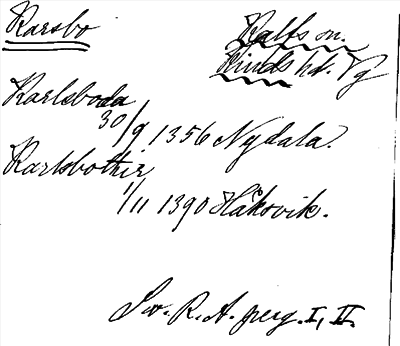 Karsbo
Kalfs sn.
Kinds hd. Vg
Karlsboda
30/9 1356 Nydala.
Karlsbother
1/11 1390 Håksvik.
Sv. R. A. perg. I, II.